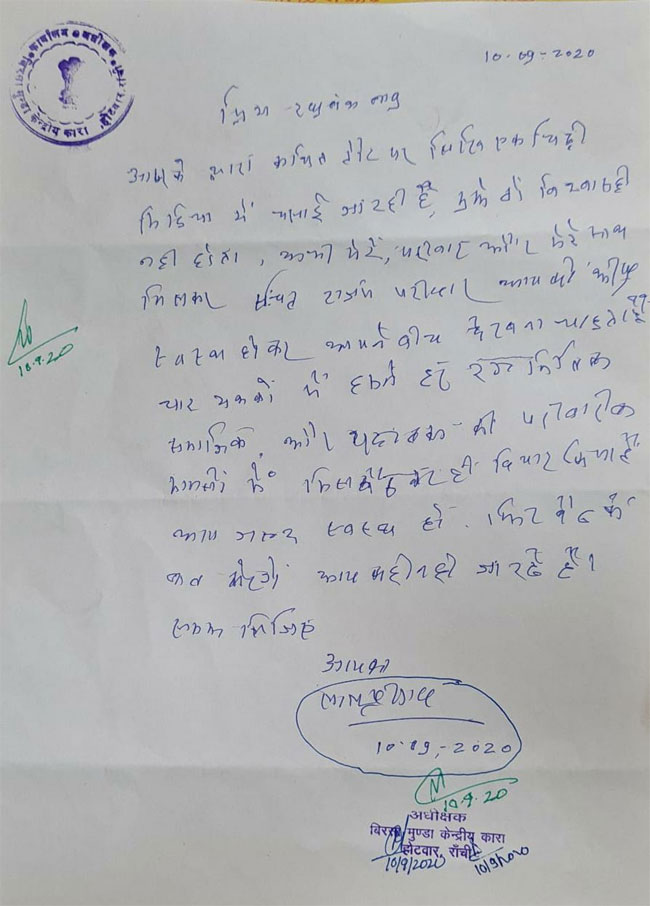 कार्यालय अधीक्षक
बिरसा मुण्डा केन्द्रीय कारा होटवार, राँची
10.09-2020
प्रिय रघुवंश बाबू
आपके द्वारा कथित तौर पर लिखि एक चिट्ठी
मिडिया में चलाई जा रही है, मुझे तो विश्वास ही
नही होता, अभी मेरे, परिवार और मेरे साथ
मिलकर राजद परिवार आपको शीघ्र
स्वस्थ होकर अपने बीच देखना चाहता है
चार दशकों में हमने हर राजनितिक
समाजिक, और यहां तक की परिवारीक
मामलों में मिल बैठकर ही विचार किया है
आप जल्द स्वस्थ हों. फिर बैठ के
बात करेंगे आप कहीं नही जा रहे है।
समझ लिजिए
10.9.20
आपका
लालू प्रसाद
10.09,-2020
10.9.20
अधीक्षक
बिरसा मुण्डा केन्द्रीय कारा
होटवार, राँची
10/9/2020
10/9/2020